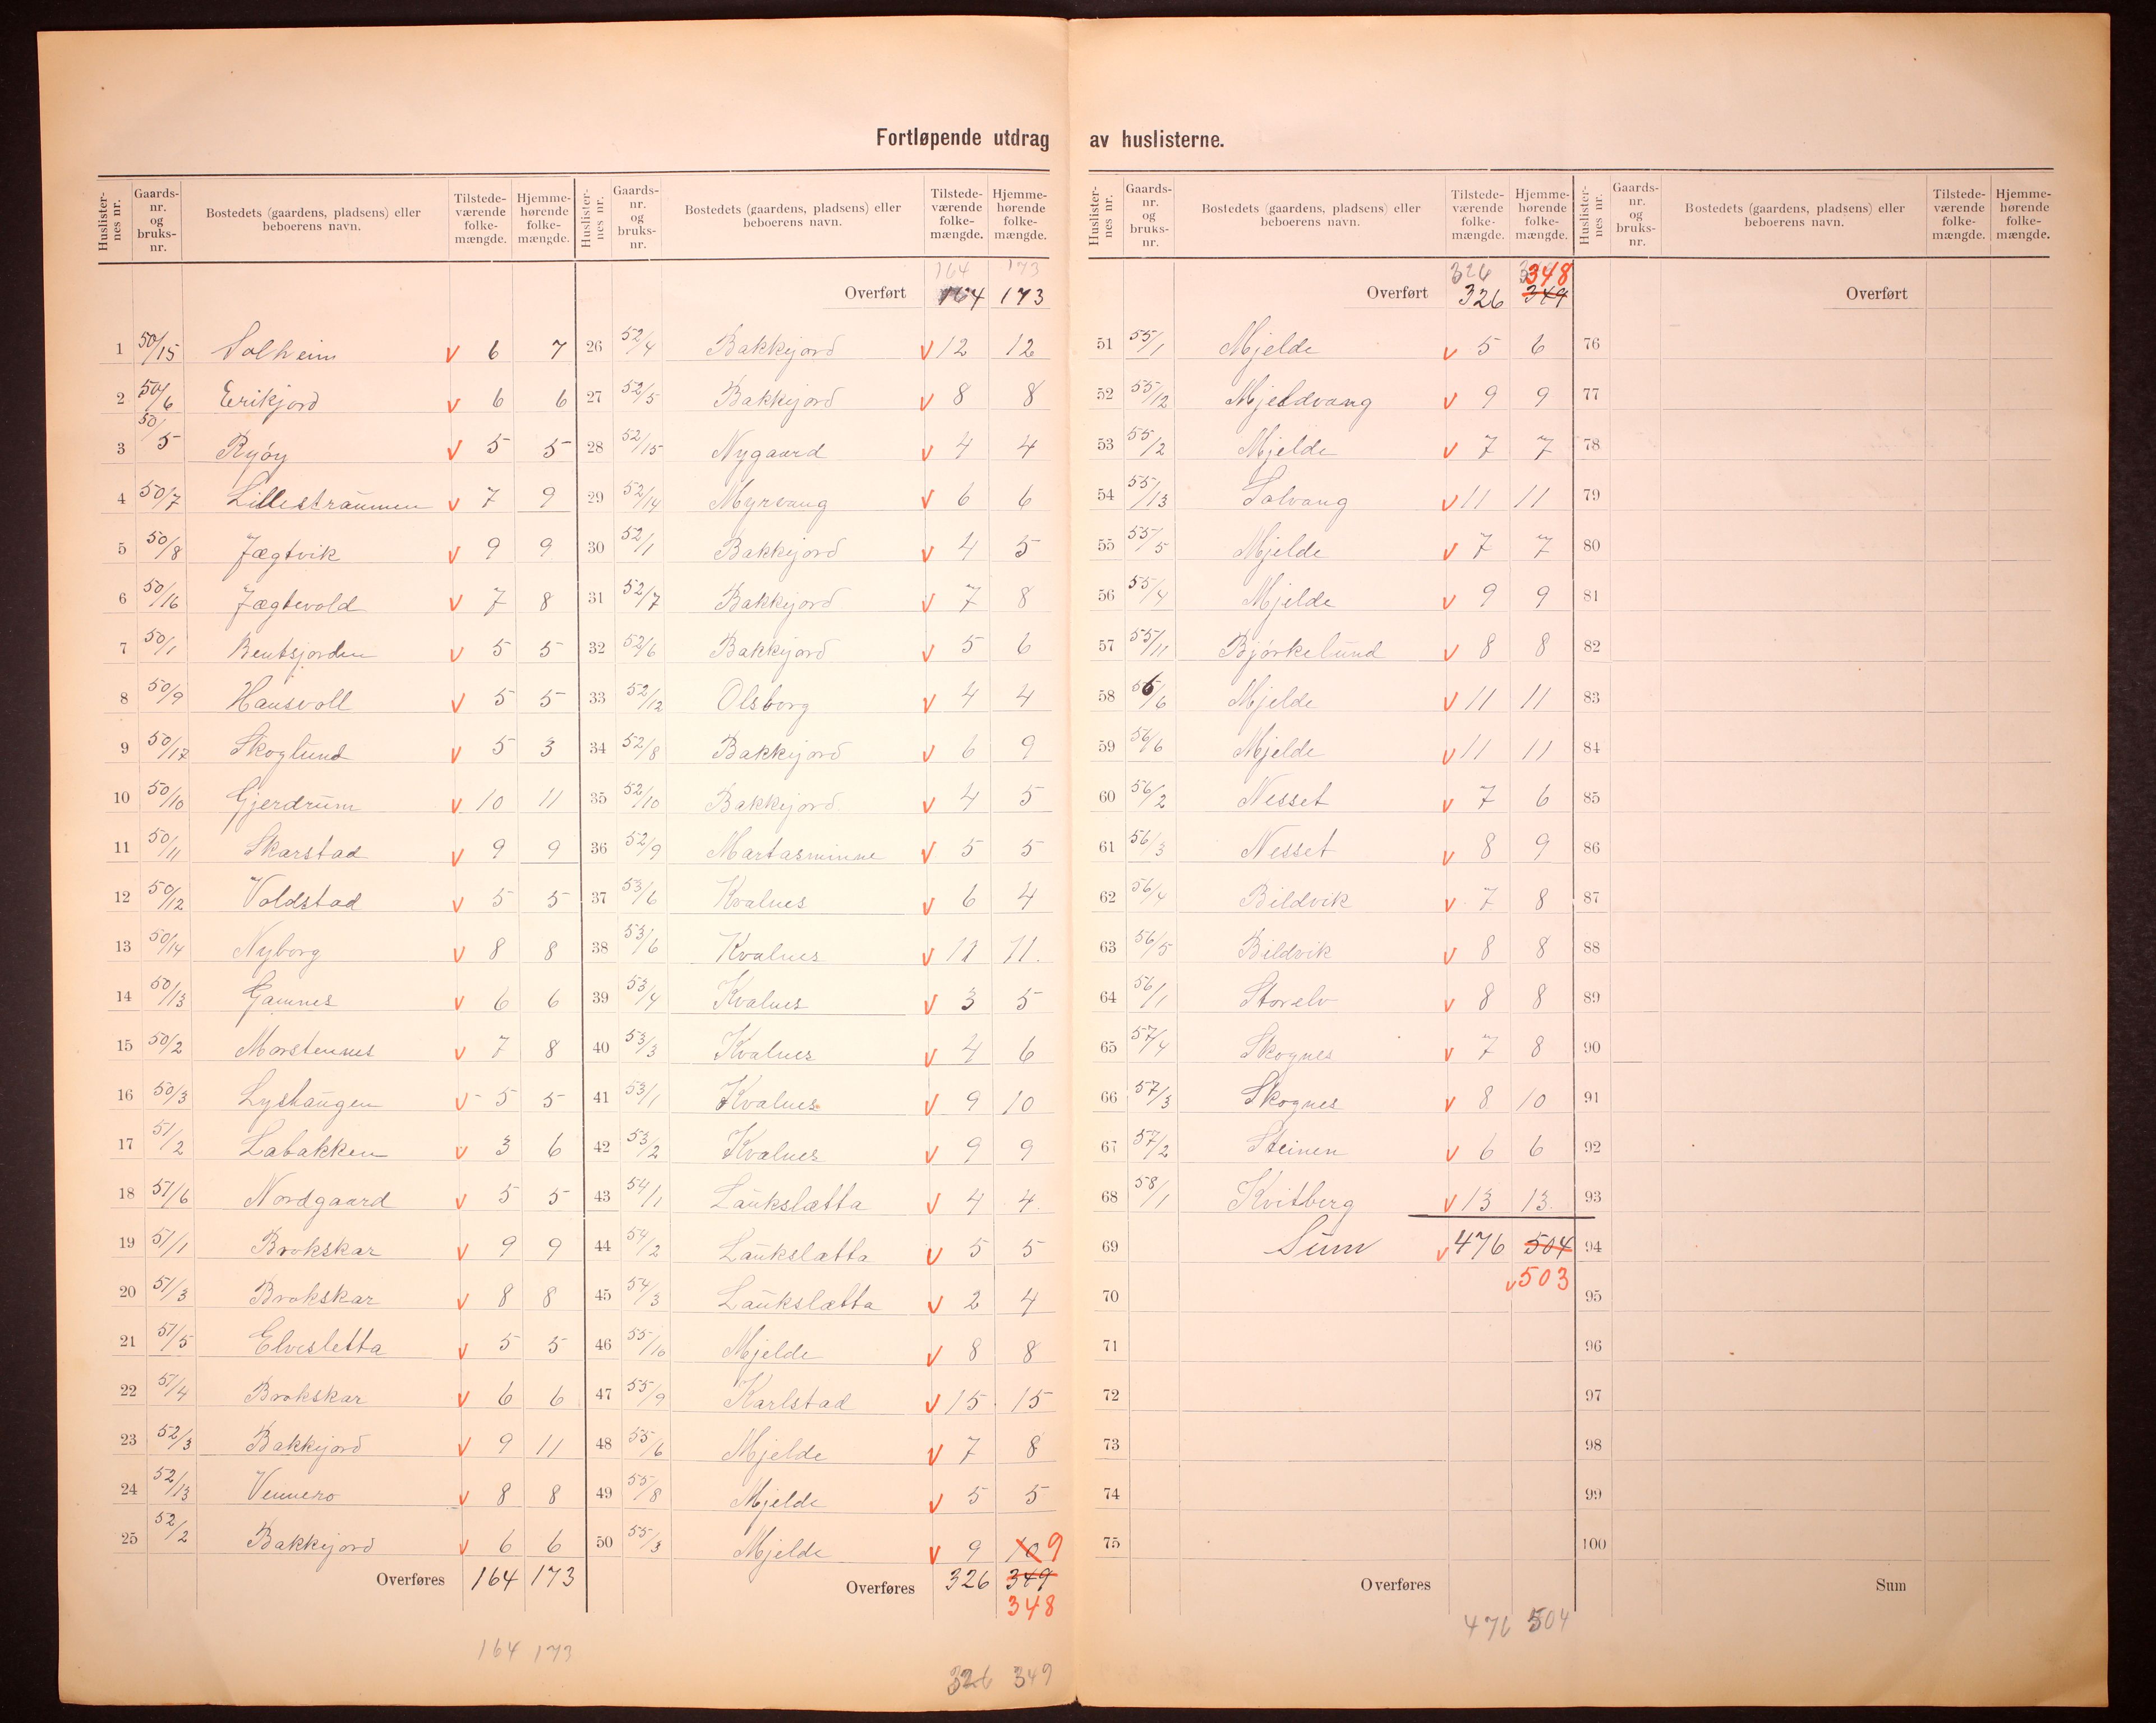 Fortløpende utdrag av huslisterne.
Huslister-nes nr. | Gaards-nr. og bruks-nr. | Bostedets (gaardens, pladsens) eller beboerens navn. | Tilstede-værende folke-mængde. | Hjemme-hørende folke-mængde.
1 50/15 Solheim v 6 7
2 50/6 Erikjord v 6 6
3 50/5 Ryøy v 5 5
4 50/7 Lillestraumen v 7 9
5 50/8 Jægtvik v 9 9
6 50/16 Jægtevold v 7 8
7 50/1 Bentsjorden v 5 5
8 50/9 Hansvoll v 5 5
9 50/17 Skoglund v 5 3
10 50/10 Gjerdrum v 10 11
11 50/11 Skarstad v 9 9
12 50/12 Voldstad v 5 5
13 50/14 Nyborg v 8 8
14 50/13 Gamnes v 6 6
15 50/2 Marstennes v 7 8
16 50/3 Lyshaugen v 5 5
17 51/2 Labakken v 3 6
18 51/6 Nordgaard v 5 5
19 51/1 Brokskar v 9 9
20 51/3 Brokskar v 8 8
21 51/5 Elvesletta v 5 5
22 51/4 Brokskar v 6 6
23 52/3 Bakkejord v 9 11
24 52/13 Vennero v 8 8
25 52/2 Bakkejord v 6 6
Overføres 164 173
164 173
Huslister-nes nr. | Gaards-nr. og bruks-nr. | Bostedets (gaardens, pladsens) eller beboerens navn. | Tilstede-værende folke-mængde. | Hjemme-hørende folke-mængde.
164 173
Overført 164 173
26 52/4 Bakkejord v 12 12
27 52/5 Bakkejord v 8 8
28 52/15 Nygaard v 4 4
29 52/14 Myrvang v 6 6
30 52/1 Bakkejord v 4 5
31 52/7 Bakkejord v 7 8
32 52/6 Bakkejord v 5 6
33 52/12 Olsborg v 4 4
34 52/8 Bakkejord v 6 9
35 52/10 Bakkejord v 4 5
36 52/9 Martasminne v 5 5
37 53/6 Kvalnes v 6 4
38 53/6 Kvalnes v 11 11.
39 53/4 Kvalnes v 3 5
40 53/3 Kvalnes v 4 6
41 53/1 Kvalnes v 9 10
42 53/2 Kvalnes v 9 9
43 54/1 Laukslætta v 4 4
44 54/2 Laukslætta v 5 5
45 54/3 Laukslætta v 2 4
46 55/10 Mjelde v 8 8
47 55/9 Karlstad v 15 15
48 55/6 Mjelde v 7 8
49 55/8 Mjelde v 5 5
50 55/3 Mjelde v 9 10 9
Overføres 326 349
348
326 349
Huslister-nes nr. | Gaards-nr. og bruks-nr. | Bostedets (gaardens, pladsens) eller beboerens navn. | Tilstede-værende folke-mængde. | Hjemme-hørende folke-mængde.
326 348
Overført 326 349
51 55/1 Mjelde v 5 6
52 55/12 Mjeldvang v 9 9
53 55/2 Mjelde v 7 7
54 55/13 Solvang v 11 11
55 55/5 Mjelde v 7 7
56 55/4 Mjelde v 9 9
57 55/11 Bjørkelund v 8 8
58 56/6 Mjelde v 11 11
59 56/6 Mjelde v 11 11
60 56/2 Nesset v 7 6
61 56/3 Nesset v 8 9
62 56/4 Bildvik v 7 8
63 56/5 Bildvik v 8 8
64 56/1 Storelv v 8 8
65 57/4 Skognes v 7 8
66 57/3 Skognes v 8 10
67 57/2 Steinen v 6 6
68 58/1 Kvitberg v 13 13.
69 Sum v 476 504
70 v 503
71
72
73
74
75
Overføres
476 504
Huslister-nes nr. | Gaards-nr. og bruks-nr. | Bostedets (gaardens, pladsens) eller beboerens navn. | Tilstede-værende folke-mængde. | Hjemme-hørende folke-mængde.
Overført
76
77
78
79
80
81
82
83
84
85
86
87
88
89
90
91
92
93
94
95
96
97
98
99
100
Sum